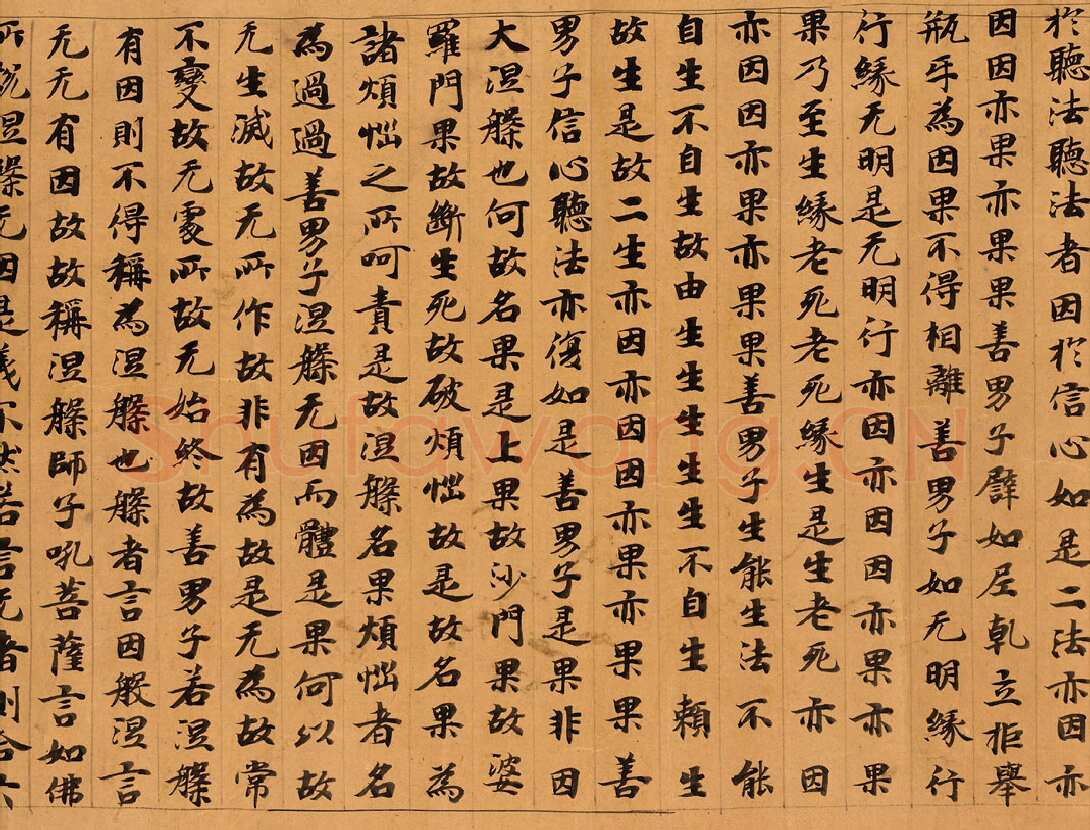 於聽法聽法者因於信心如是二法亦因亦
因因亦果亦果果善男子譬如尼乹立拒舉
瓶手為因果不得相離善男子如无明緣行
行緣无明是无明行亦因亦因因亦果亦果
果乃至生緣老死老死緣生是生老死亦因
亦因因亦果亦果果善男子生能生法不能
自生不自生故由生生生生生不自生賴生
故生是故二生亦因亦因因亦果亦果果善
男子信心聽法亦復如是善男子是果非因
大涅槃也何故名果是上果故沙門果故婆
羅門果故斷生死故破煩惱故是故名果為
諸煩惱之所呵責是故涅槃名果煩惱者名
為過過善男子涅槃无因而體是果何以故
无生滅故无所作故非有為故是无為故常
不變故无處所故无始終故善男子若涅槃
有因則不得稱為涅槃也槃者言因般涅言
无无有因故故稱涅槃師子吼菩薩言如佛
所說涅槃无因是義不然若言无者則合六
Shufawang.CN